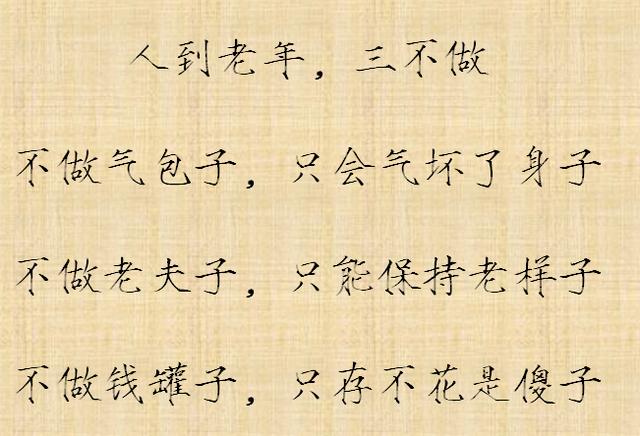 人到老年，三不做
不做气包子，只会气坏了身子
不做老夫子，只能保持老样子
不做钱罐子，只存不花是傻子